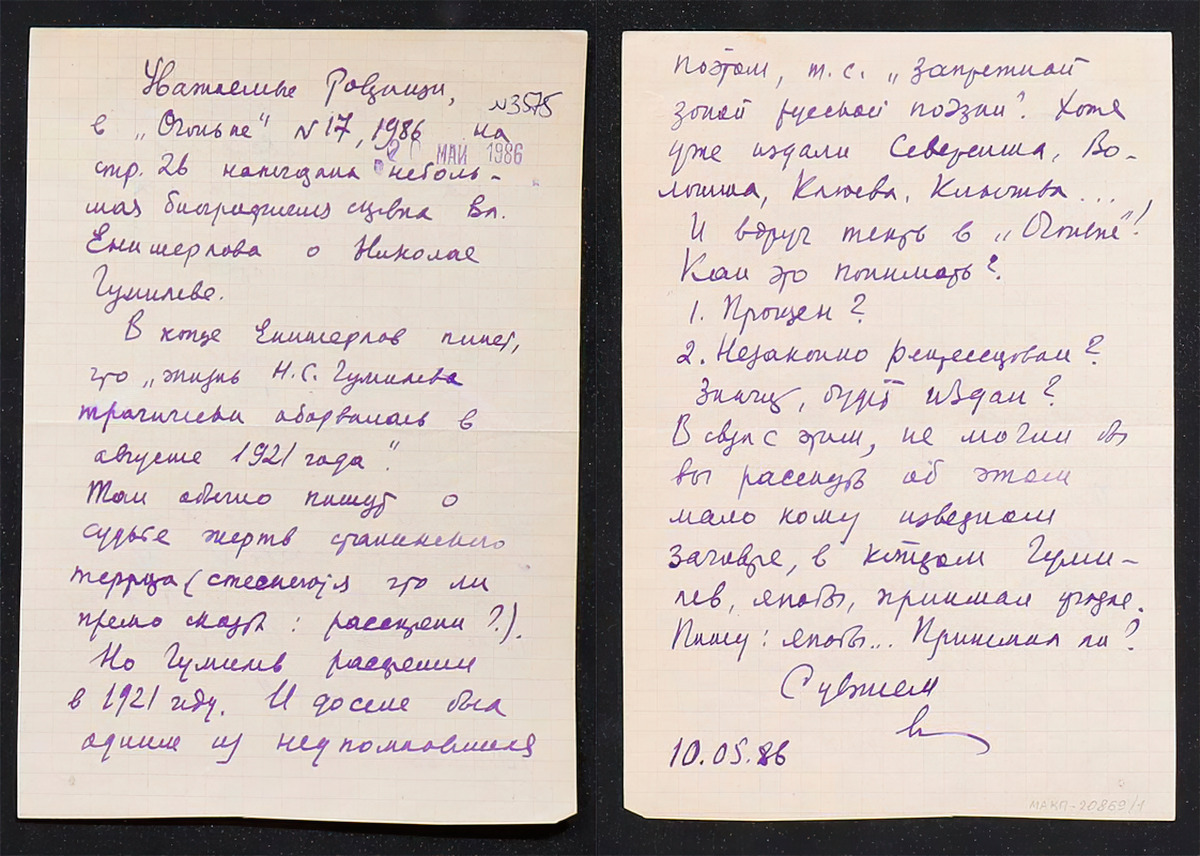 Уважаемые товарищи,
N3575
в „Огоньке" N17, 1986 на
20 МАЙ 1986
стр. 26 напечатана неболь-
шая биографическая справка Вл.
Енишерлова о Николае
Гумилеве.
В конце Енишерлов пишет,
что „жизнь Н.С. Гумилева
трагически оборвалась в
августе 1921 года".
Так обычно пишут о
судьбе жертв сталинского
террора (стесняются что ли
прямо сказать: расстрелян?).
Но Гумилев расстрелян
в 1921 году. И доселе был
одним из неупоминавшихся
поэтом, т.с. „запретной
зоной русской поэзии". Хотя
уже издали Северянина, Во-
лошина, Клюева, Клычкова...
И вдруг теперь в „Огоньке"!
Как это понимать?
1. Прощен?
2. Незаконно репрессирован?
Значит, будет издан?
В связи с этим, не могли бы
вы рассказать об этом
мало кому известном
заговоре, в котором Гуми-
лев, якобы, принимал участие.
Пишу: якобы... Принимал ли?
С уважением
10.05.86
МАКП-20869/1